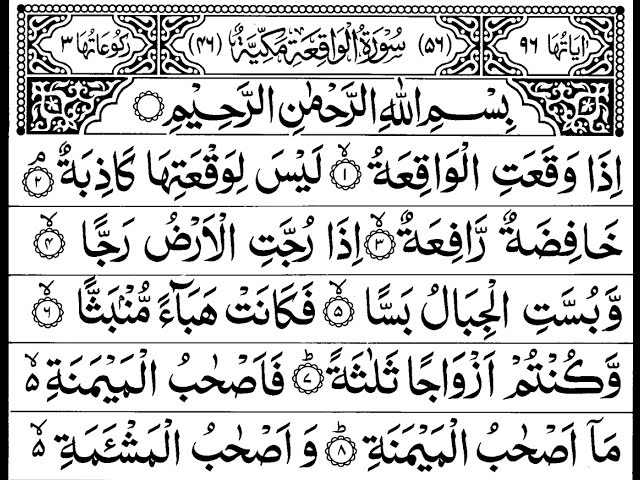 اٰیاتُہَا ٩٦ (٥٦) سُوْرَةُ الْوَاقِعَةِ مَكِّيَّةٌ (٤٦) رُكُوْعَاتُہَا ٣
بِسْمِ اللّٰهِ الرَّحْمٰنِ الرَّحِيْمِ
اِذَا وَقَعَتِ الْوَاقِعَةُ ۙ‏﴿١﴾ لَيْسَ لِوَقْعَتِهَا كَاذِبَةٌ ۘ‏﴿٢﴾
خَافِضَةٌ رَّافِعَةٌ ۙ‏﴿٣﴾ اِذَا رُجَّتِ الْاَرْضُ رَجًّا ۙ‏﴿٤﴾
وَّبُسَّتِ الْجِبَالُ بَسًّا ۙ‏﴿٥﴾ فَكَانَتْ هَبَآءً مُّنْۢبَثًّا ۙ‏﴿٦﴾
وَّكُنْتُمْ اَزْوَاجًا ثَلٰثَةً ؕ‏﴿٧﴾ فَاَصْحٰبُ الْمَيْمَنَةِ ۙ۵
مَاۤ اَصْحٰبُ الْمَيْمَنَةِ ؕ‏﴿٨﴾ وَ اَصْحٰبُ الْمَشْـَٔمَةِ ۙ۵